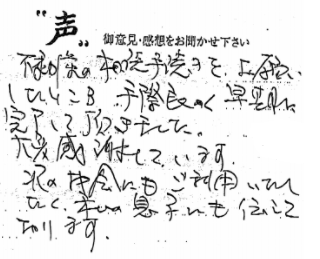 "声"
御意見・感想をお聞かせ下さい
相続手続きを、お願い
したところ 手際良く 早期に
完了して頂きました。
大変感謝しています。
次の機会にもご利用いたし
たく、息子にも伝えて
有ります。